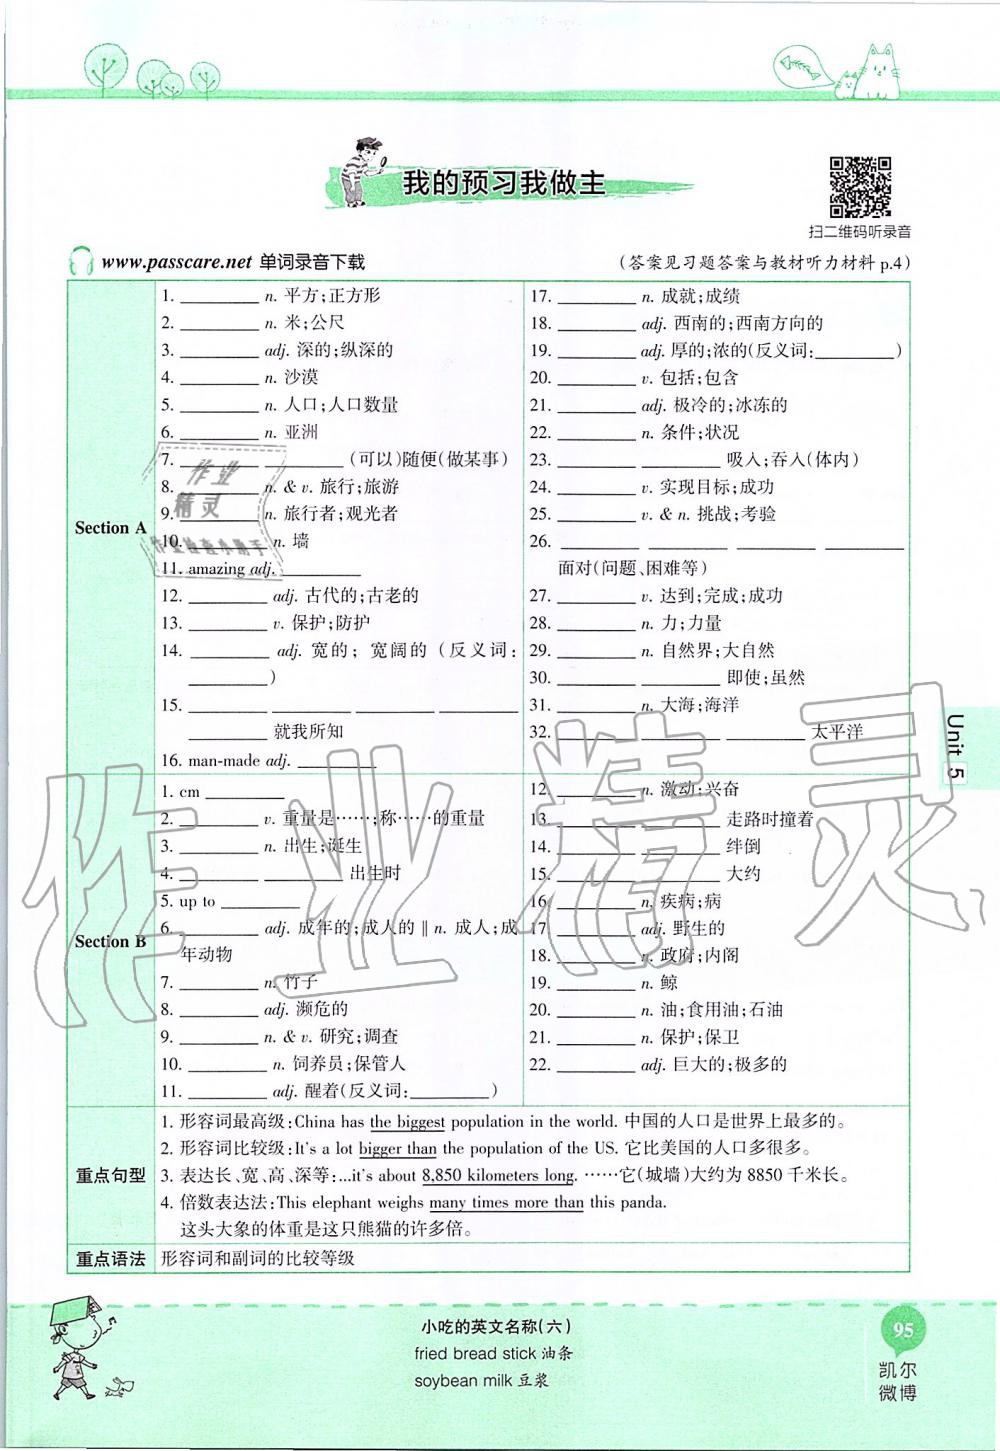 我的预习我做主
扫二维码听录音
www.passcare.net 单词录音下载
(答案见习题答案与教材听力材料 p.4)
Section A
1. ________ n. 平方;正方形
2. ________ n. 米;公尺
3. ________ adj. 深的;纵深的
4. ________ n. 沙漠
5. ________ n. 人口;人口数量
6. ________ n. 亚洲
7. ________ ________ (可以)随便(做某事)
8. ________ n. & v. 旅行;旅游
9. ________ n. 旅行者;观光者
10. ________ n. 墙
11. amazing adj. ________
12. ________ adj. 古代的;古老的
13. ________ v. 保护;防护
14. ________ adj. 宽的;宽阔的(反义词:
________)
15. ________ ________ ________ ________
________ 就我所知
16. man-made adj. ________
17. ________ n. 成就;成绩
18. ________ adj. 西南的;西南方向的
19. ________ adj. 厚的;浓的(反义词:________)
20. ________ v. 包括;包含
21. ________ adj. 极冷的;冰冻的
22. ________ n. 条件;状况
23. ________ ________ 吸入;吞入(体内)
24. ________ v. 实现目标;成功
25. ________ v. & n. 挑战;考验
26. ________ ________ ________ ________
面对(问题、困难等)
27. ________ v. 达到;完成;成功
28. ________ n. 力;力量
29. ________ n. 自然界;大自然
30. ________ ________ 即使;虽然
31. ________ n. 大海;海洋
32. ________ ________ ________ 太平洋
Section B
1. cm ________
2. ________ v. 重量是……;称……的重量
3. ________ n. 出生;诞生
4. ________ ________ 出生时
5. up to ________
6. ________ adj. 成年的;成人的 ‖ n. 成人;成
年动物
7. ________ n. 竹子
8. ________ adj. 濒危的
9. ________ n. & v. 研究;调查
10. ________ n. 饲养员;保管人
11. ________ adj. 醒着(反义词:________)
12. ________ n. 激动;兴奋
13. ________ ________ 走路时撞着
14. ________ ________ 绊倒
15. ________ ________ 大约
16. ________ n. 疾病;病
17. ________ adj. 野生的
18. ________ n. 政府;内阁
19. ________ n. 鲸
20. ________ n. 油;食用油;石油
21. ________ n. 保护;保卫
22. ________ adj. 巨大的;极多的
重点句型
1. 形容词最高级:China has the biggest population in the world. 中国的人口是世界上最多的。
2. 形容词比较级:It's a lot bigger than the population of the US. 它比美国的人口多很多。
3. 表达长、宽、高、深等:...it's about 8,850 kilometers long. ……它(城墙)大约为 8850 千米长。
4. 倍数表达法:This elephant weighs many times more than this panda.
这头大象的体重是这只熊猫的许多倍。
重点语法
形容词和副词的比较等级
Unit 5
小吃的英文名称(六)
fried bread stick 油条
soybean milk 豆浆
95
凯尔
微博
作业
精灵
作业检查小助手
作业精灵